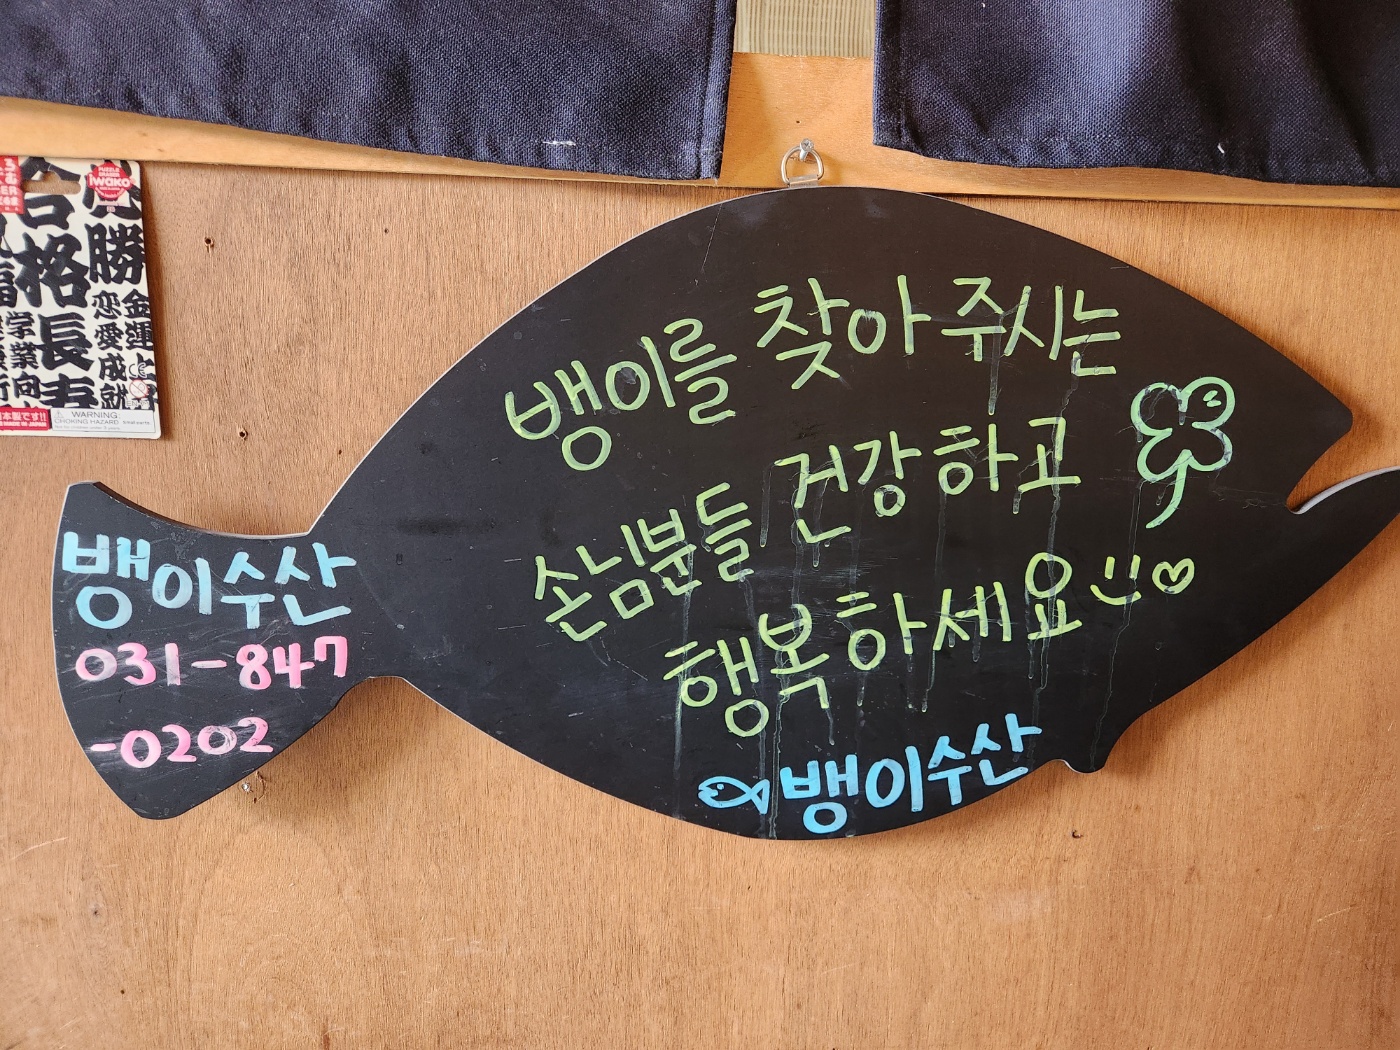 뱅이를 찾아 주시는
손님분들 건강하고
행복하세요
뱅이수산
뱅이수산
031-847
-0202
iwako
合格長寿
必勝
金運
恋愛成就
学業向
日本製です!!
MADE IN JAPAN
WARNING:
CHOKING HAZARD